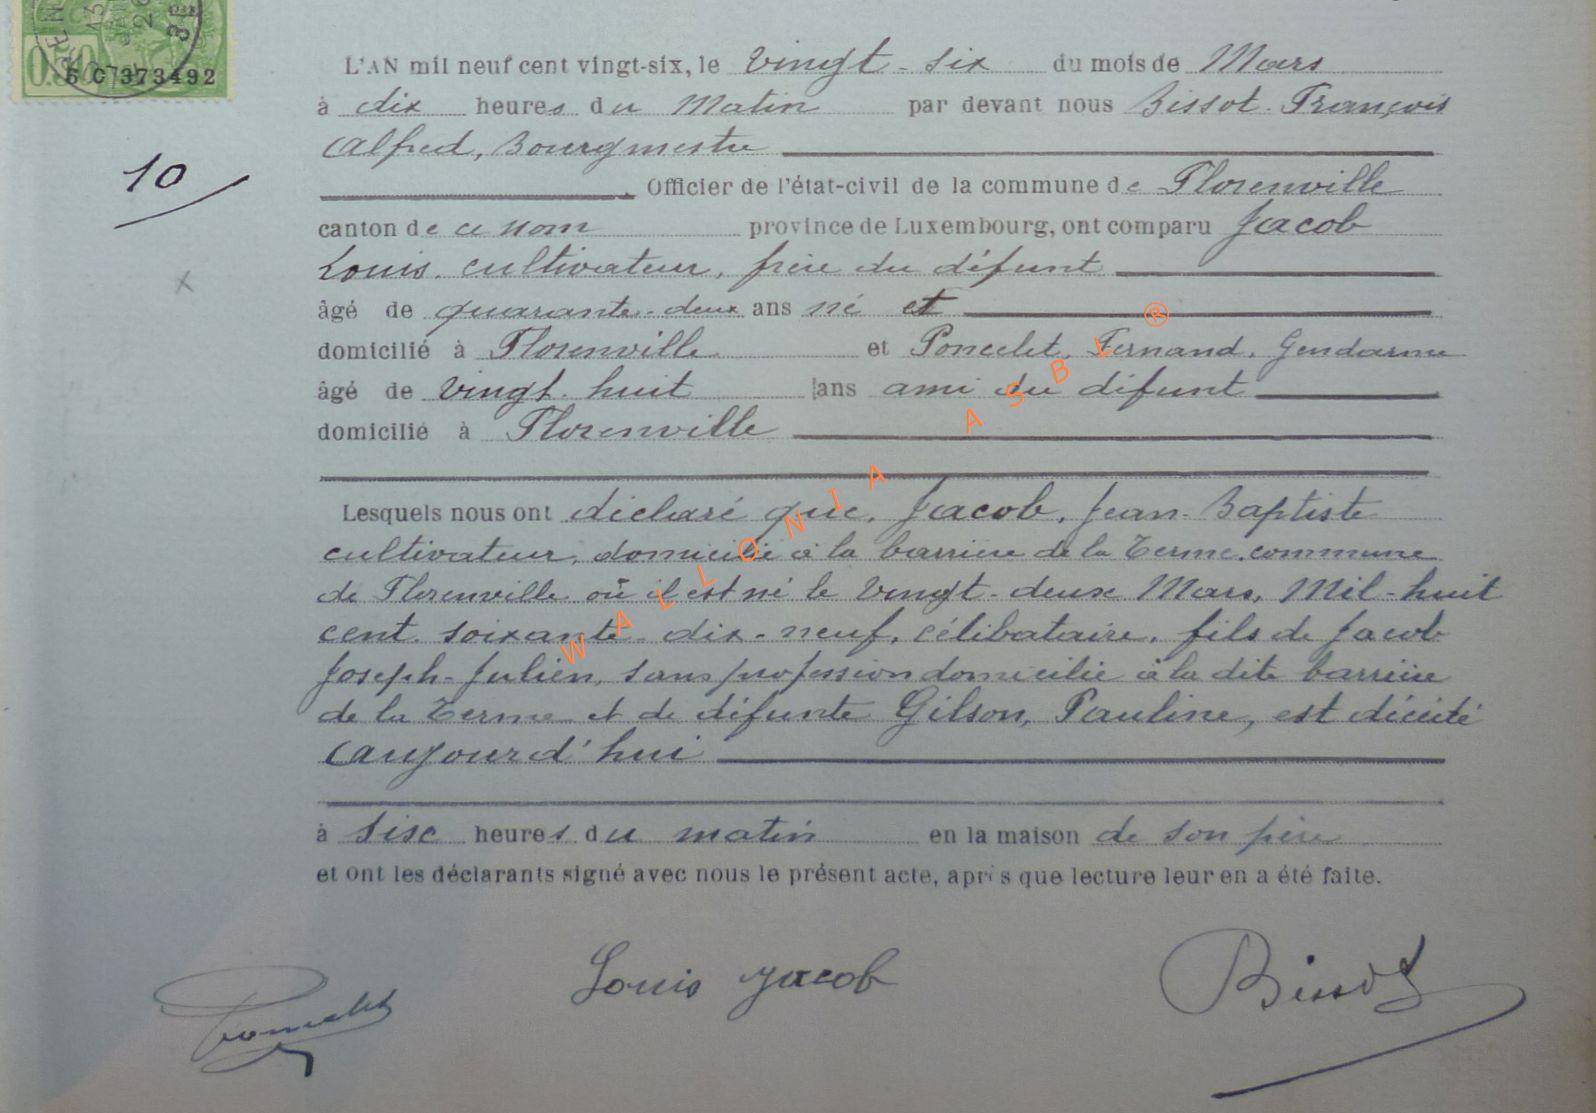 L'AN mil neuf cent vingt-six, le vingt-six du mois de Mars
à dix heures du Matin par devant nous Bissot François
Alfred, Bourgmestre
Officier de l'état-civil de la commune de Florenville
10
canton de ce nom province de Luxembourg, ont comparu Jacob
Louis, cultivateur, frère du défunt
âgé de quarante-deux ans né et
domicilié à Florenville et Poncelet, Fernand, Gendarme
âgé de vingt-huit ans ami du défunt
domicilié à Florenville
Lesquels nous ont déclaré que, Jacob, Jean-Baptiste
cultivateur, domicilié à la barrière de la Terme, commune
de Florenville où il est né le vingt-deux Mars, Mil-huit
cent soixante-dix-neuf, célibataire, fils de Jacob
Joseph-Julien, sans profession domicilié à la dite barrière
de la Terme et de défunte Gilson, Pauline, est décédé
aujourd'hui
à sise heures du matin en la maison de son père
et ont les déclarants signé avec nous le présent acte, après que lecture leur en a été faite.
Poncelet Louis Jacob Bissot
0.50
6 C 373492
WALLONIA ASBL ®